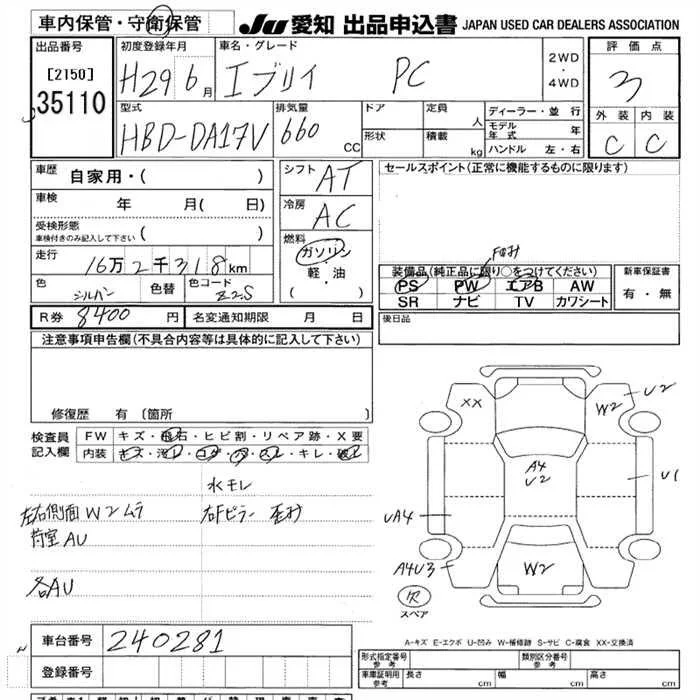 車内保管・守衛保管
JU 愛知 出品申込書 JAPAN USED CAR DEALERS ASSOCIATION
出品番号
[2150]
35110
初度登録年月
H29 6月
車名・グレード
エブリイ PC
2WD
・
4WD
評価点
3
外装 内装
C C
型式
HBD-DA17V
排気量
660 CC
ドア
形状
定員 人
積載 kg
ディーラー・並行
モデル年式 年
ハンドル 左・右
車歴
自家用・( )
車検 年 月( 日)
受検形態
車検付きのみ記入して下さい ( )
走行
16万2千318km
色 シルバー 色替 色コード Z2S
シフト AT
冷房 AC
燃料
ガソリン
軽・油
( )
セールスポイント(正常に機能するものに限ります)
装備品(純正品に限り○をつけてください)
PS PW エアB AW
SR ナビ TV カワシート
新車保証書
有・無
後日品
R券 8400 円 名変通知期限 月 日
注意事項申告欄(不具合内容等は具体的に記入して下さい)
修復歴 有 〔箇所 〕
検査員記入欄
FW キズ・飛石・ヒビ割・リペア跡・X要
内装 キズ・汚レ・コゲ・穴・スレ・キレ・破レ
水モレ
左右側面W2ムラ 右Fピラー 歪み
荷室AU
各AU
XX
W2
U2
A4
U2
U1
UA4
A4U3
W2
欠
スペア
A-キズ E-エクボ U-凹み W-補修跡 S-サビ C-腐食 XX-交換済
車台番号 240281
登録番号
形式指定番号 参考
類別区分番号 参考
車庫証明用 参考
長さ cm 幅 cm 高さ cm